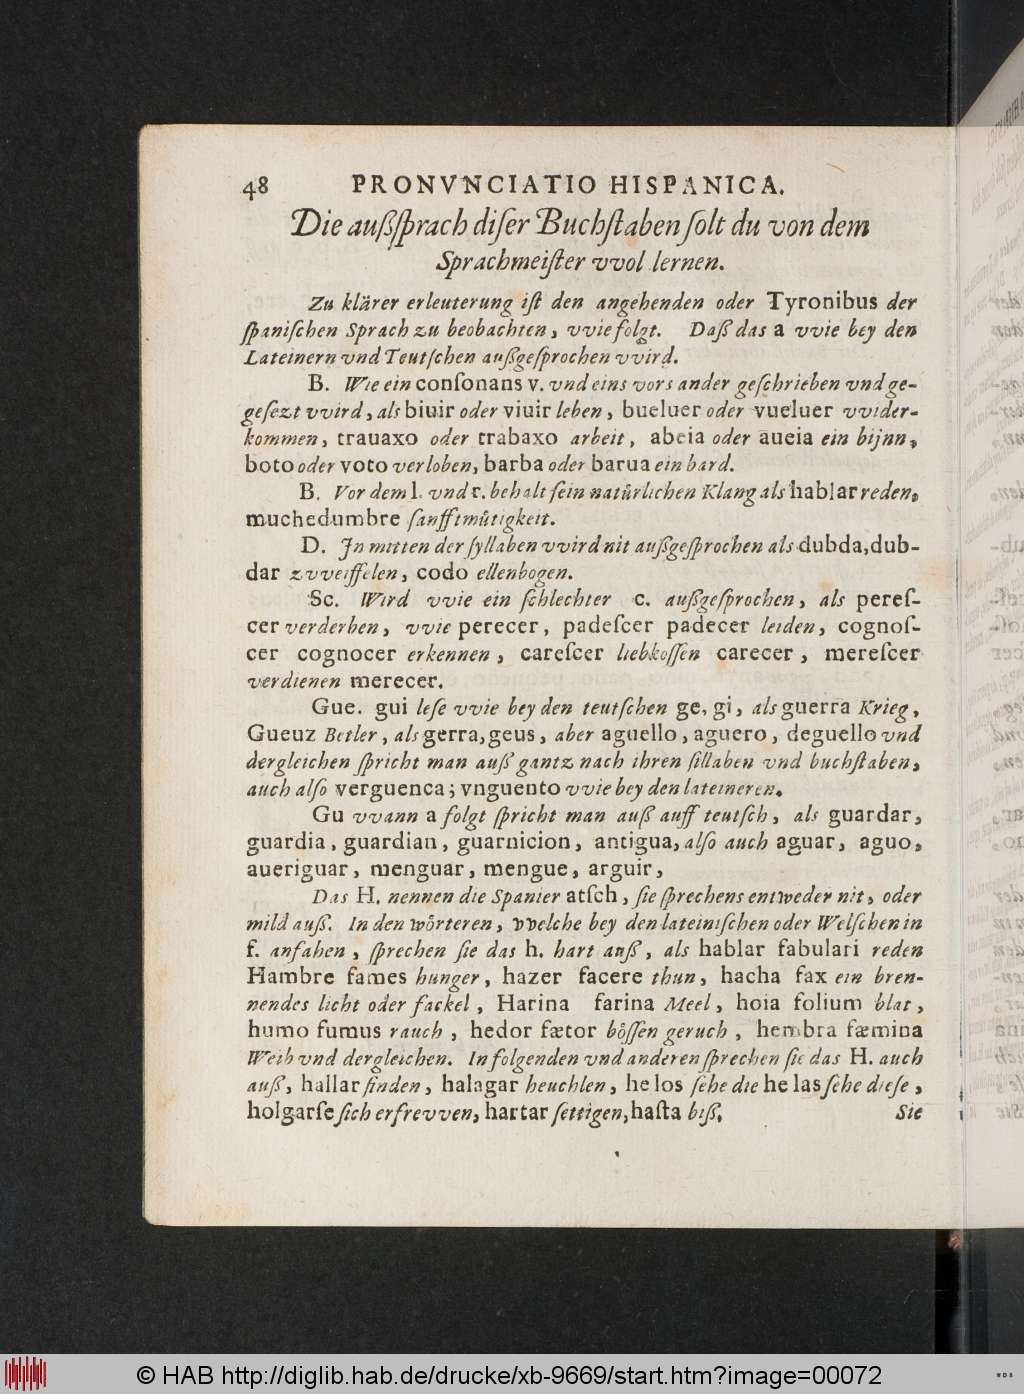 48 PRONVNCIATIO HISPANICA.
Die außſprach diſer Buchſtaben ſolt du von dem
Sprachmeiſter vvol lernen.
Zu klärer erleuterung iſt den angehenden oder Tyronibus der
ſpaniſchen Sprach zu beobachten, vvie folgt. Daß das a vvie bey den
Lateinern vnd Teutſchen außgeſprochen vvird.
B. Wie ein conſonans v. vnd eins vors ander geſchrieben vnd ge-
geſezt vvird, als biuir oder viuir leben, bueluer oder vueluer vvider-
kommen, trauaxo oder trabaxo arbeit, abeia oder aueia ein bijnn,
boto oder voto verloben, barba oder barua ein bard.
B. Vor dem l. vnd r. behalt ſein natůrlichen Klang als hablar reden,
muchedumbre ſanfftmůtigkeit.
D. In mitten der ſyllaben vvird nit außgeſprochen als dubda, dub-
dar zvveiffelen, codo ellenbogen.
Sc. Wird vvie ein ſchlechter c. außgeſprochen, als pereſ-
cer verderben, vvie perecer, padeſcer padecer leiden, cognoſ-
cer cognocer erkennen, careſcer liebkoſſen carecer, mereſcer
verdienen merecer.
Gue. gui leſe vvie bey den teutſchen ge, gi, als guerra Krieg,
Gueuz Betler, als gerra, geus, aber aguello, aguero, deguello vnd
dergleichen ſpricht man auß gantz nach ihren ſillaben vnd buchſtaben,
auch alſo verguenca; vnguento vvie bey den lateineren.
Gu vvann a folgt ſpricht man auß auff teutſch, als guardar,
guardia, guardian, guarnicion, antigua, alſo auch aguar, aguo,
aueriguar, menguar, mengue, arguir,
Das H. nennen die Spanier atſch, ſie ſprechens entweder nit, oder
mild auß. In den wörteren, vvelche bey den lateiniſchen oder Welſchen in
f. anfahen, ſprechen ſie das h. hart auß, als hablar fabulari reden
Hambre fames hunger, hazer facere thun, hacha fax ein bren-
nendes licht oder fackel, Harina farina Meel, hoia folium blat,
humo fumus rauch, hedor fætor böſſen geruch, hembra fæmina
Weib vnd dergleichen. In folgenden vnd anderen ſprechen ſie das H. auch
auß, hallar finden, halagar heuchlen, he los ſehe die he las ſehe dieſe,
holgarſe ſich erfrevven, hartar ſettigen, haſta biß, Sie
© HAB http://diglib.hab.de/drucke/xb-9669/start.htm?image=00072